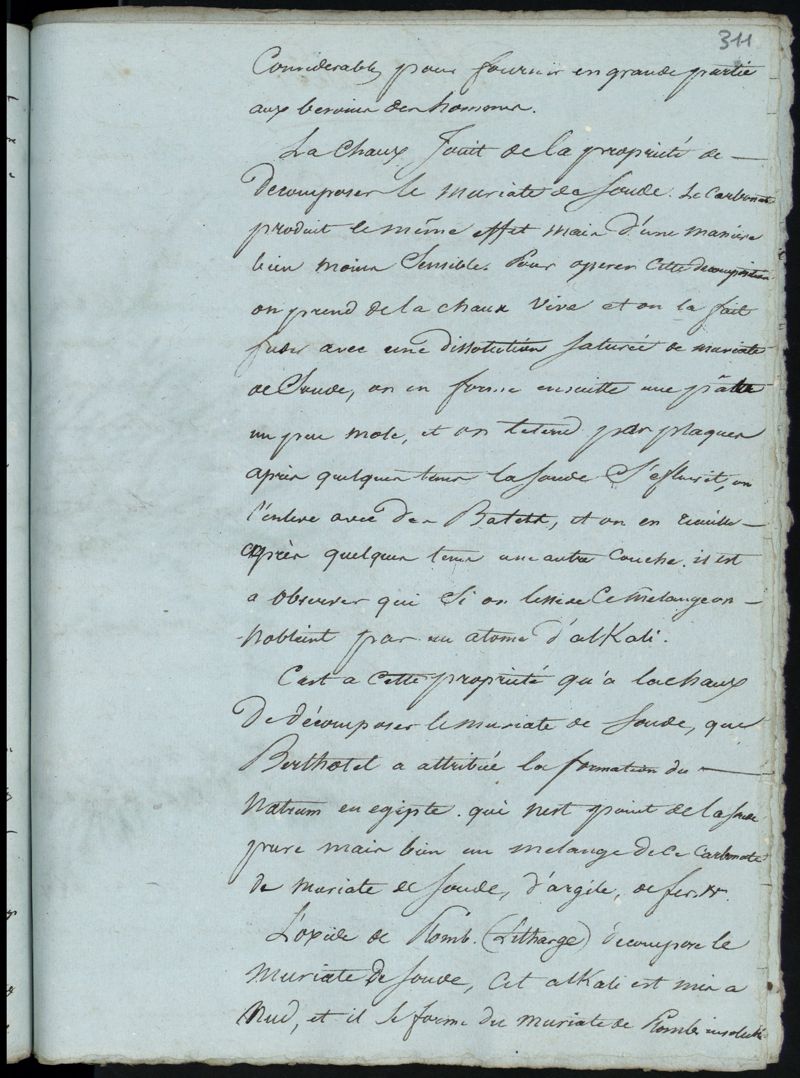 311
Considerables pour fournir en grande partie
aux besoins des hommes.
La Chaux Jouit de la propriété de —
Decomposer le muriate de Soude. Le Carbonate
produit le même effet mais d'une maniere
bien moins Sensible. Pour operer Cette decomposition
on prend de la chaux vive et on la fait
fuser avec une dissolution saturée de muriate
de Soude, on en forme ensuitte une pâte
un peu mole, et on l'etend par plaques
après quelques tems la Soude S'eflurit, on
l'enleve avec des, et on en —
après quelques tems une autre Couche. il est
a observer qui Si on lessive Ce mélange on —
n'obtient pas un atome d'alKali.
C'est a Cette propriété qu'a la chaux
De décomposer le muriate de Soude, que
Berthotel a attribué la formation du —
Natrum en egipte. qui n'est point de la Soude
pure mais bien un melange de Ce Carbonate
de muriate de Soude, d'argile, de fer &.
L'oxide de Plomb. (Litharge) décompose le
Muriate De Soude, Cet alKali est mis a
Nud, et il se forme du muriate de Plomb insoluble